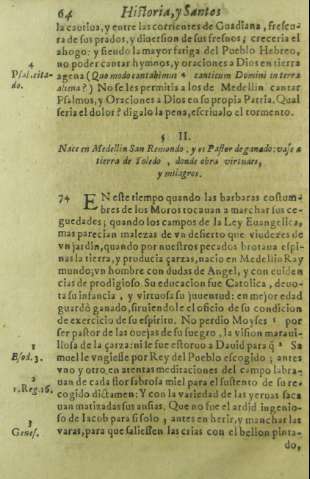 64 Historia, y Santos
la cautiva, y entre las corrientes de Guadiana, frescura
ra de sus prados, y diversion de sus fresnos; creceria el
ahogo: y siendo la mayor fatiga del Pueblo Hebreo,
no poder cantar hymnos, y oraciones a Dios en tierra
agena (Quo modo cantabimus 4 canticum Domini in terra
aliena?) No se les permitia a los de Medellin cantar
Psalmos, y Oraciones a Dios en su propia Patria. Qual
seria el dolor? digalo la pena, escrivalo el tormento.
4
Psal. cita-
do.
§ II.
Nace en Medellin San Remondo, y es Pastor de ganado: vase a
tierra de Toledo, donde obra virtudes,
y milagros.
74 EN este tiempo quando las barbaras costum-
bres de los Moros tocauan a marchar sus ce-
guedades; quando los campos de la Ley Euangelica,
mas parecian malezas de vn desierto que viudezes de
vn jardin, quando por nuestros pecados brotaua espi-
nas la tierra, y producia çarzas, nacio en Medellin Ray
mundo; vn hombre con dudas de Angel, y con euiden
cias de prodigioso. Su educacion fue Catolica, deuo-
ta su infancia, y virtuosa su juuentud: en mejor edad
guardò ganado, siruiendole el oficio de su condicion
de exercicio de su espiritu. No perdio Moyses 1 por
ser pastor de las ouejas de su suegro, la vision maraui-
llosa de la çarza: ni le fue estoruo a Dauid para q̃ 2 Sa
muel le vngiesse por Rey del Pueblo escogido; antes
vno y otro, en atentas meditaciones del campo labra-
uan de cada flor sabrosa miel para el sustento de su re
cogido dictamen: Y con la variedad de las yeruas saca
uan matizadas sus ansias. Que no fue el ardid ingenio-
so de Iacob para si solo, 3 antes en herir, y manchar las
varas, para que saliessen las crias con el bellon pinta-
do,
1
Exod. 3.
2
1. Reg. 16.
3
Genes.